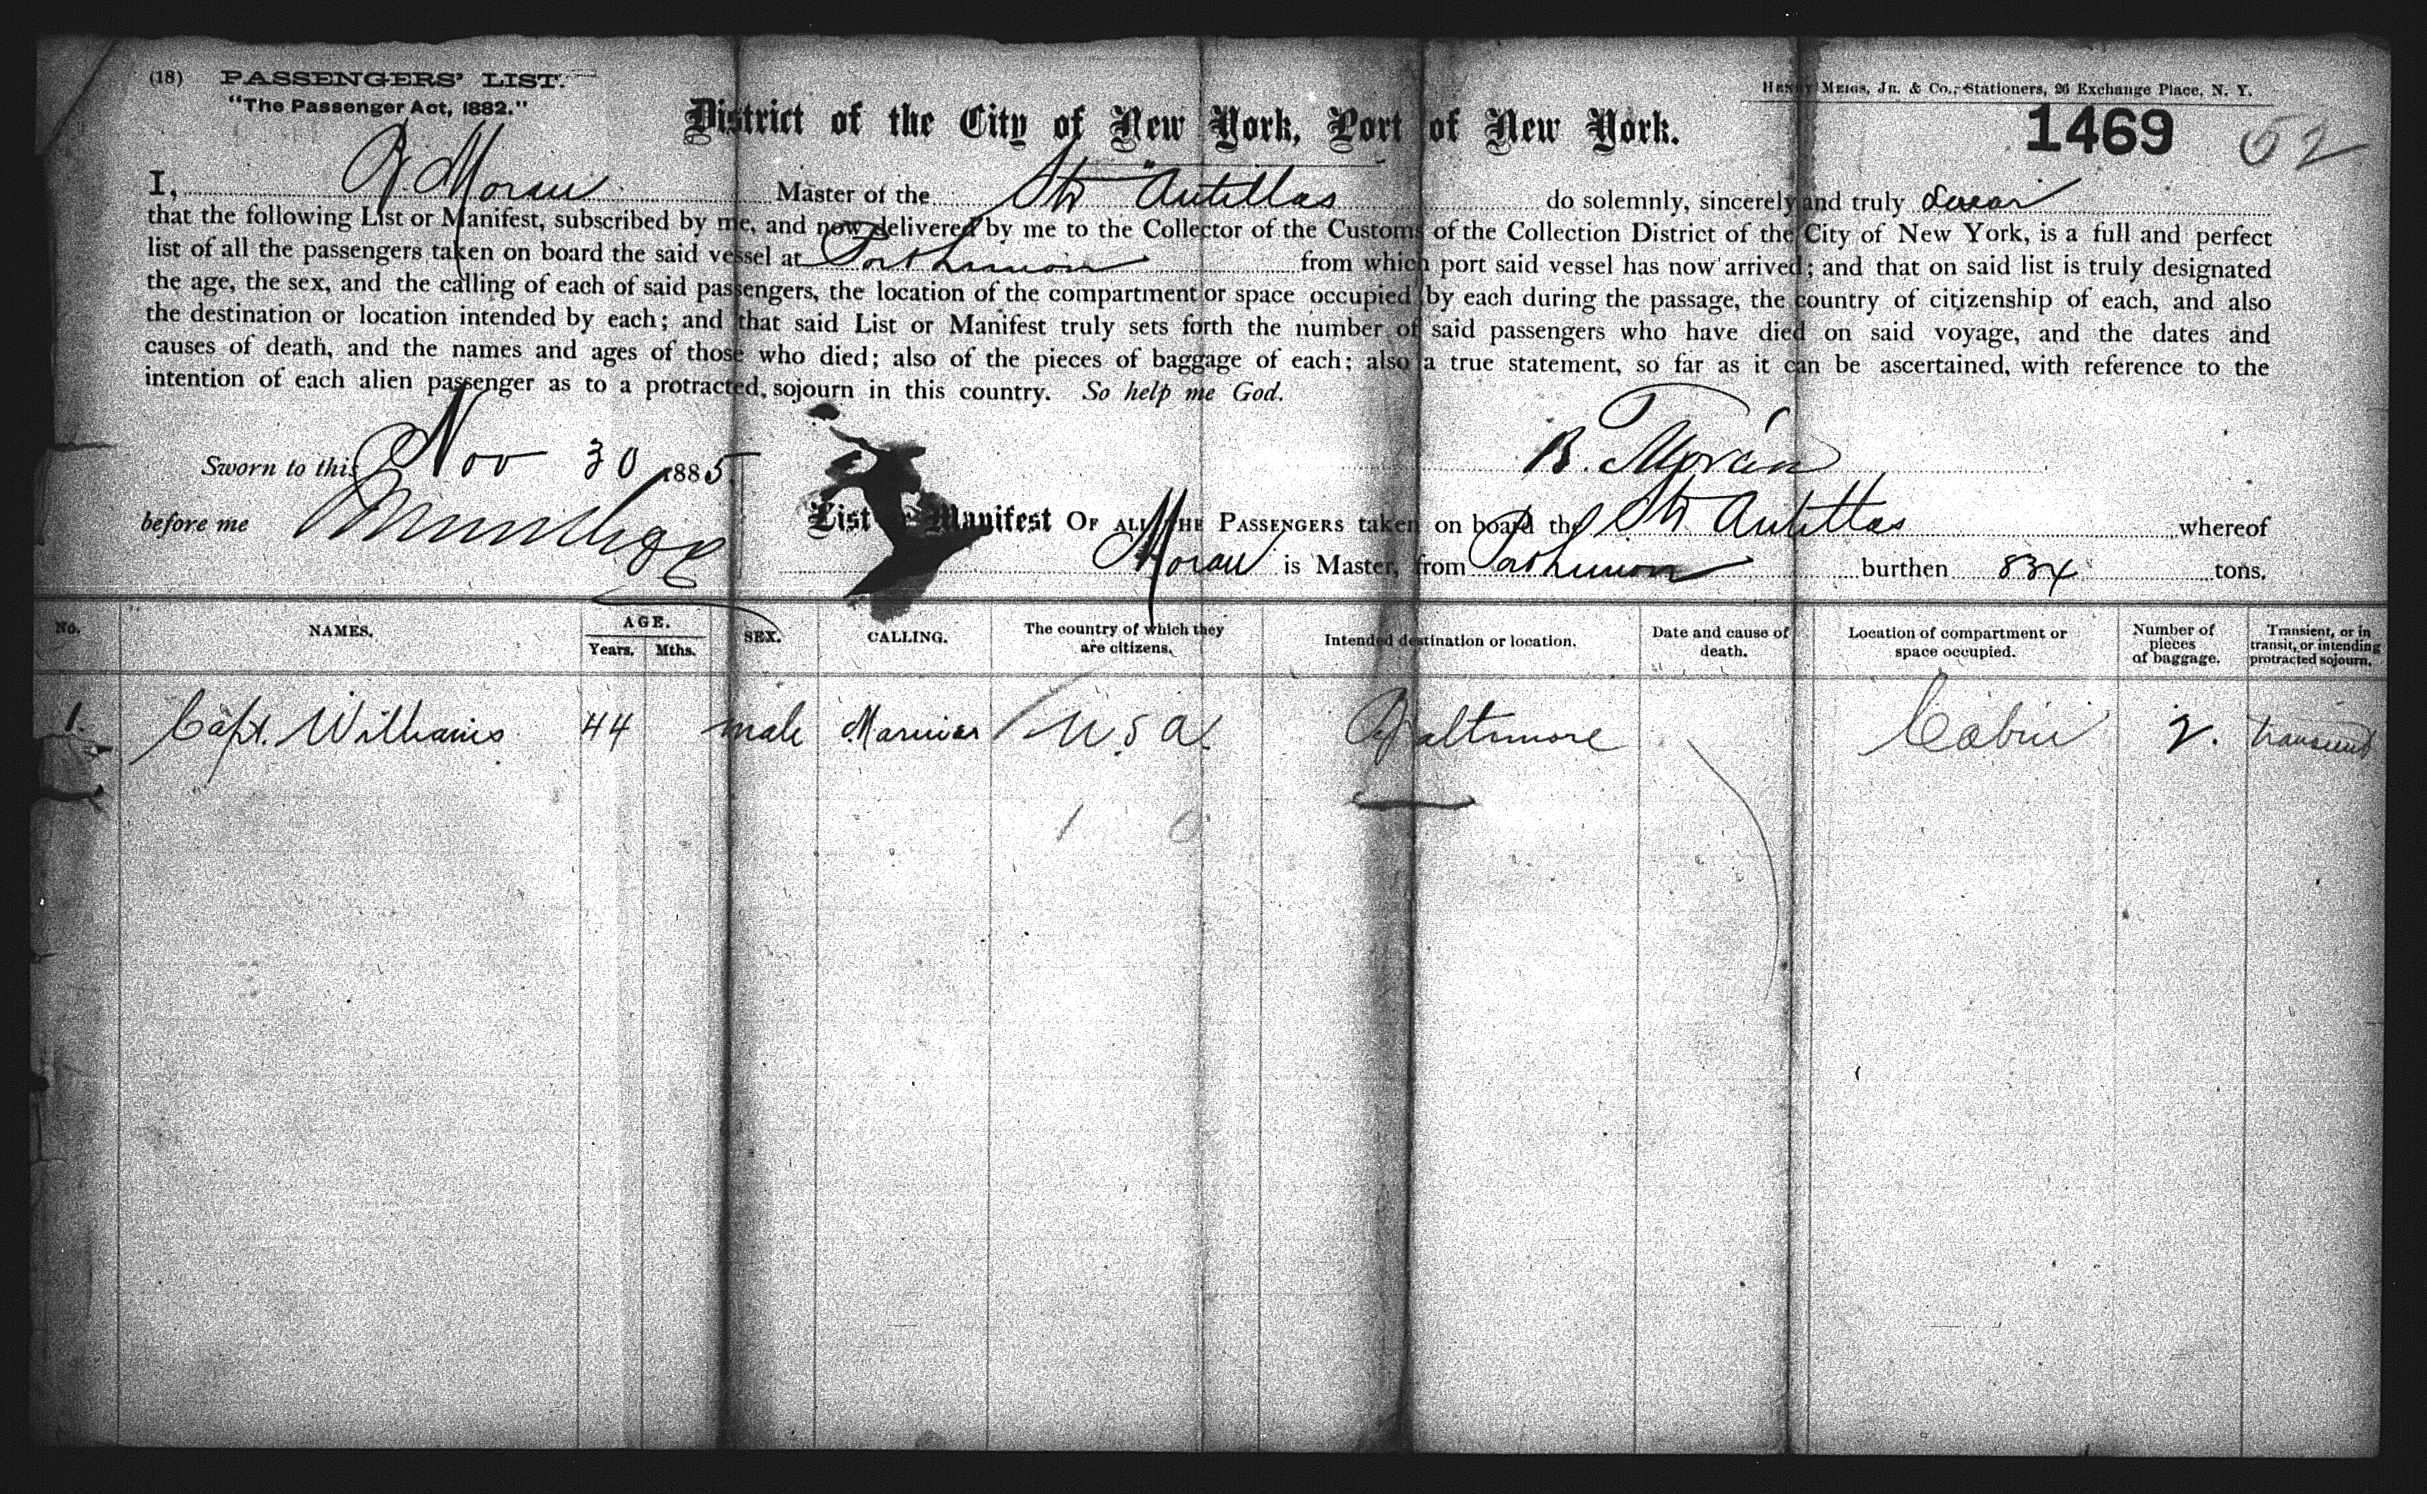 (18) PASSENGERS' LIST.
"The Passenger Act, 1882."
Henry Meigs, Jr. & Co., Stationers, 26 Exchange Place, N. Y.
District of the City of New York, Port of New York.
1469 52
I, B. Moran Master of the Str "Antillas do solemnly, sincerely and truly swear
that the following List or Manifest, subscribed by me, and now delivered by me to the Collector of the Customs of the Collection District of the City of New York, is a full and perfect
list of all the passengers taken on board the said vessel at Port Limon from which port said vessel has now arrived; and that on said list is truly designated
the age, the sex, and the calling of each of said passengers, the location of the compartment or space occupied by each during the passage, the country of citizenship of each, and also
the destination or location intended by each; and that said List or Manifest truly sets forth the number of said passengers who have died on said voyage, and the dates and
causes of death, and the names and ages of those who died; also of the pieces of baggage of each; also a true statement, so far as it can be ascertained, with reference to the
intention of each alien passenger as to a protracted sojourn in this country. So help me God.
Sworn to this Nov 30 1885 B. Moran
before me
List or Manifest OF ALL THE PASSENGERS taken on board the Str Antillas whereof
Moran is Master, from Port Limon burthen 834 tons.
No. NAMES. AGE. Years. Mths. SEX. CALLING. The country of which they are citizens. Intended destination or location. Date and cause of death. Location of compartment or space occupied. Number of pieces of baggage. Transient, or in transit, or intending protracted sojourn.
1. Capt. Williams 44 male Mariner U.S.A. Baltimore Cabin 2. transient
1 0